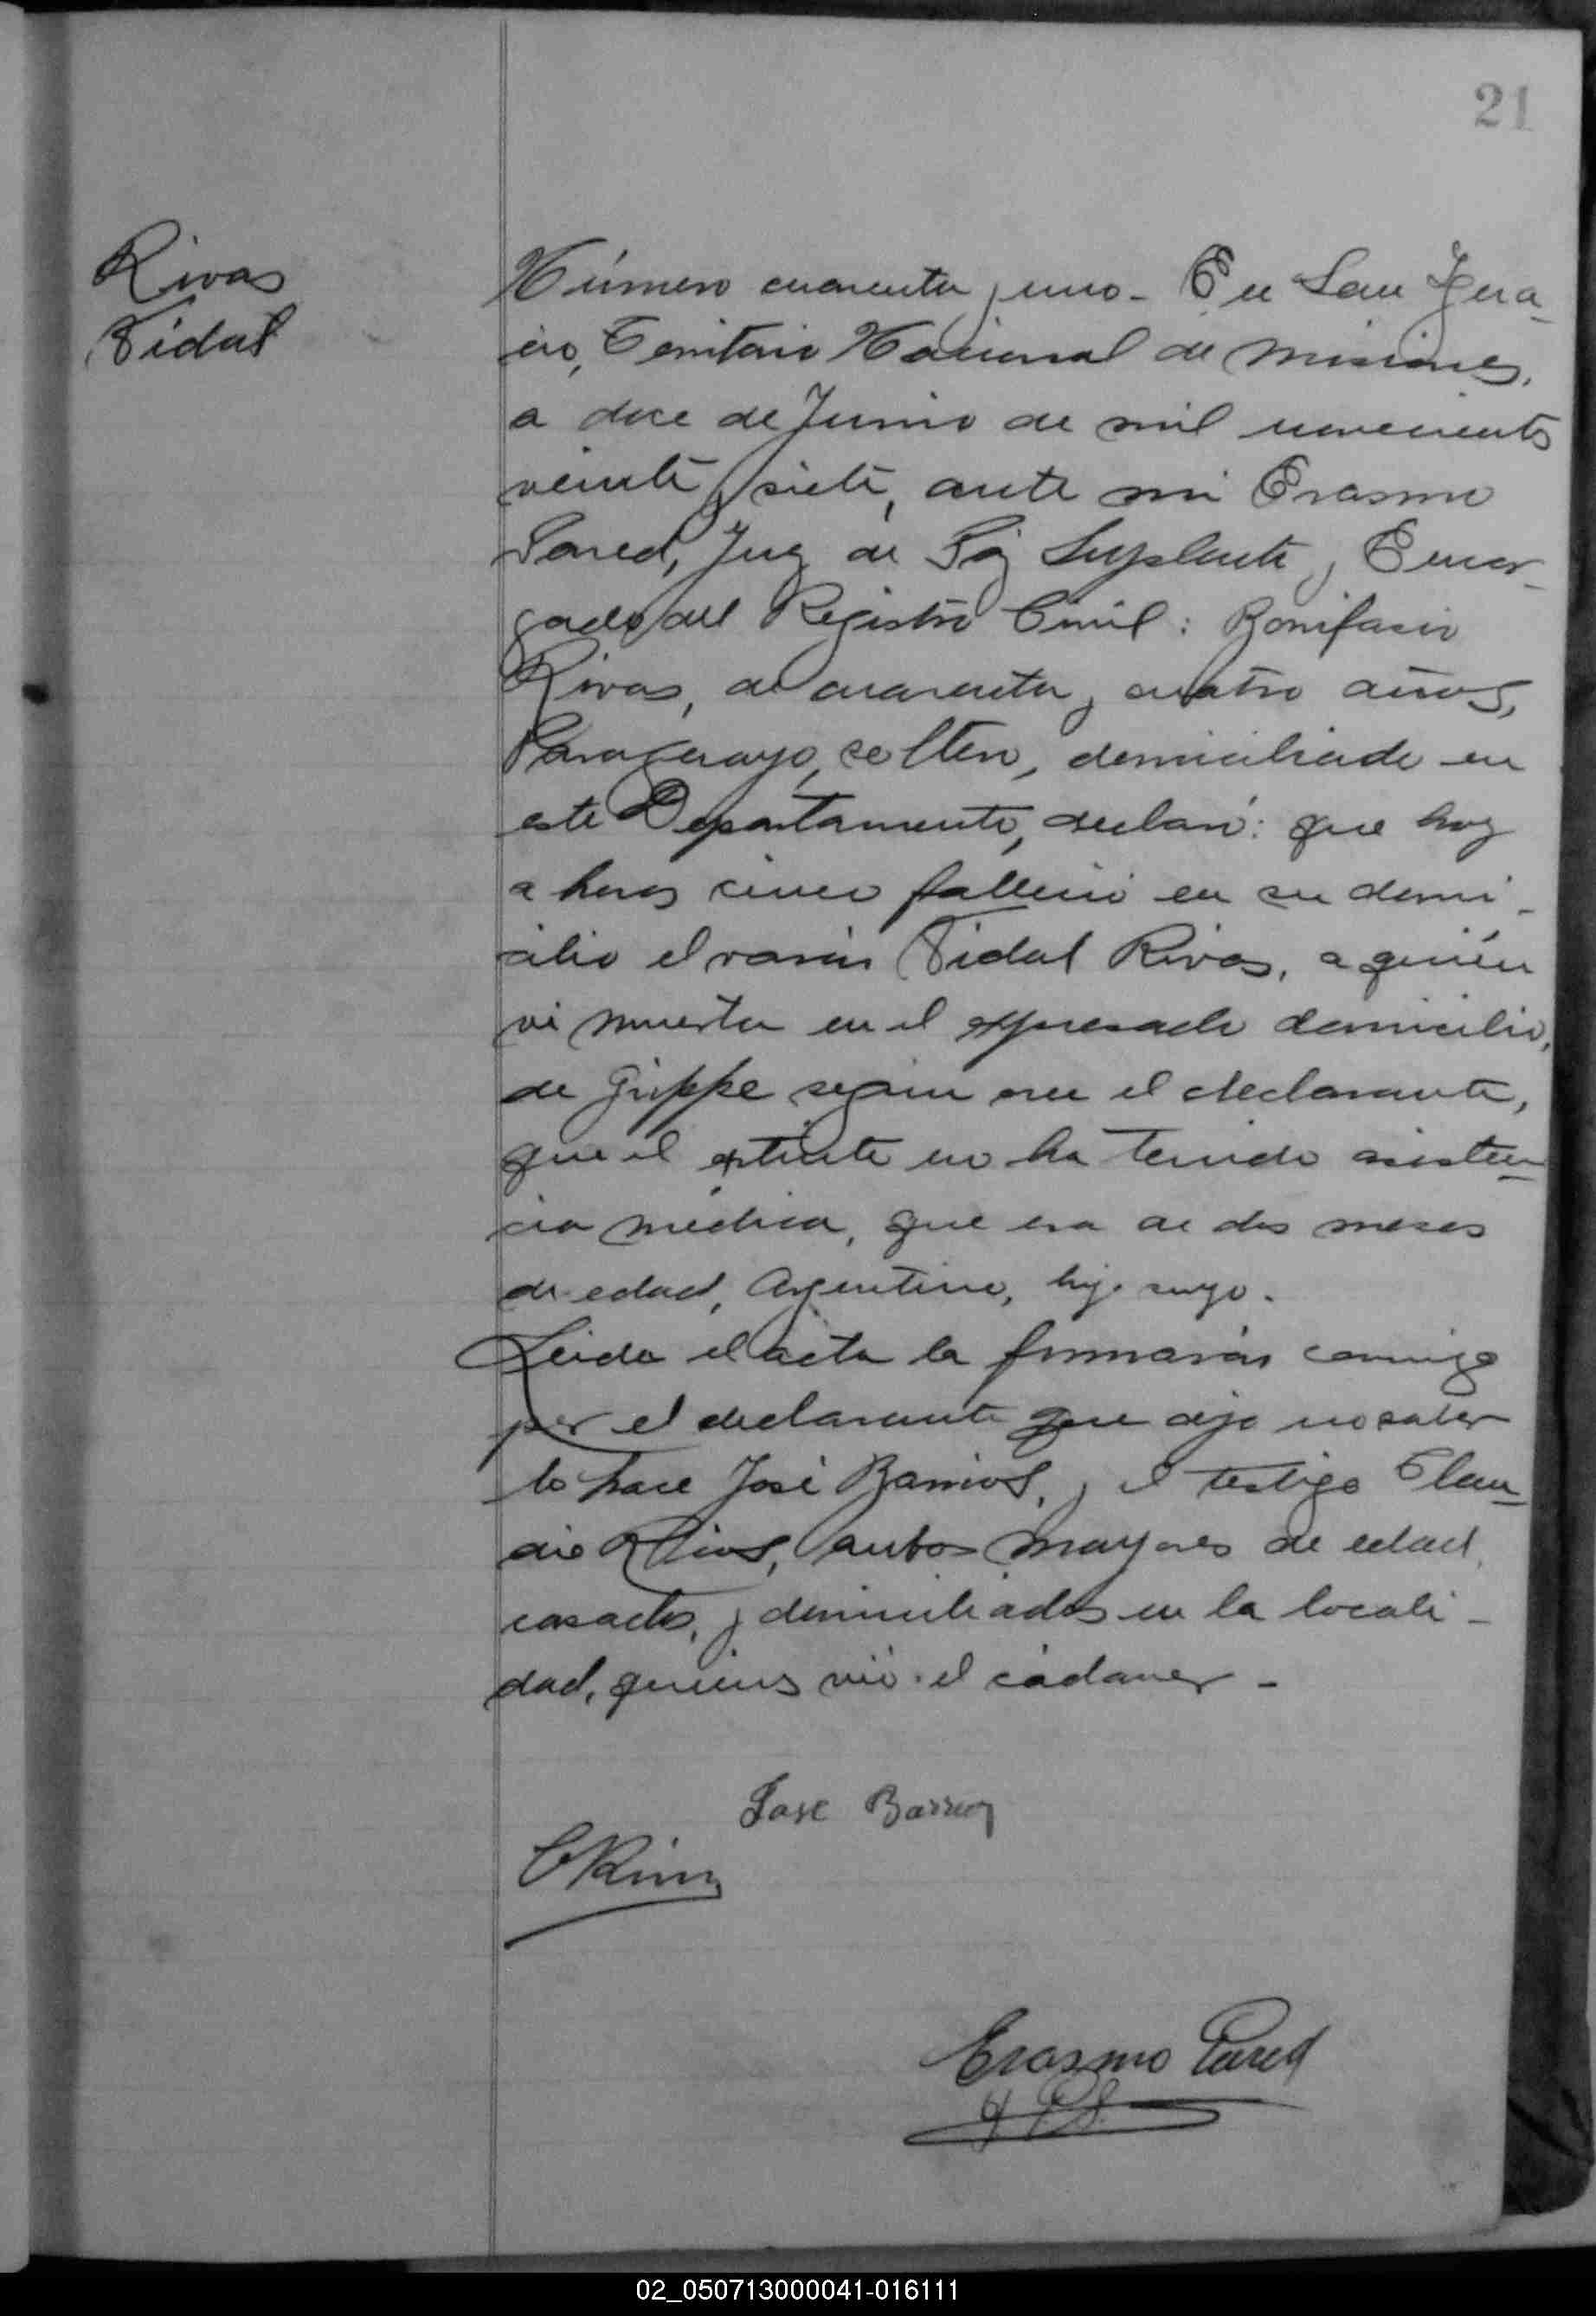 21
Rivas
Vidal
Número cuarenta y uno - En San Igna-
cio, Territorio Nacional de Misiones,
a doce de Junio de mil novecientos
veinte y siete, ante mi Erasmo
Pared, Juez de Paz Suplente y Encar-
gado del Registro Civil: Bonifacio
Rivas, de cuarenta y cuatro años,
Paraguayo, soltero, domiciliado en
este Departamento, declaró: que hoy
a horas cinco falleció en su domi-
cilio el varón Vidal Rivas, a quién
vi muerto en el expresado domicilio,
de Grippe según cree el declarante,
que el extinto no ha tenido asisten-
cia médica, que era de dos meses
de edad, Argentino, hijo suyo.
Leida el acta la firmarán conmigo
por el declarante que dijo no saber
lo hace José Barrios, y el testigo Clau-
dio Rios, ambos mayores de edad,
casados, y domiciliados en la locali-
dad, quienes vió el cádaver -
Jose Barrios
C Rios
Erasmo Pared
J P S
02_050713000041-016111